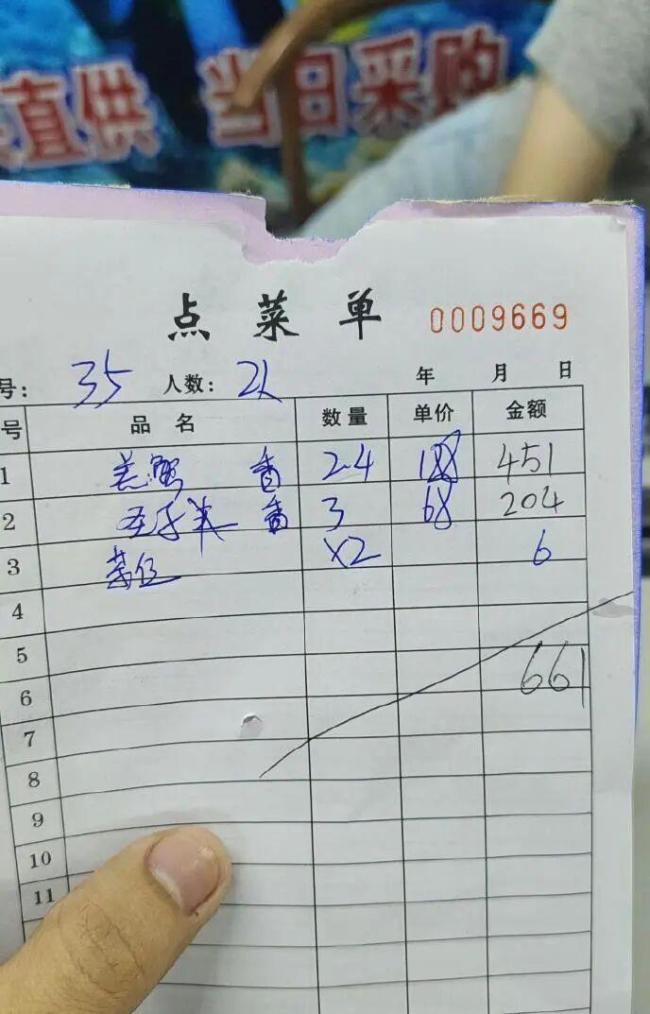 直供 当日采购
点菜单 0009669
号: 35 人数: 2人 年 月 日
号 品名 数量 单价 金额
1 羔蟹 2.4 188 451
2 3 68 204
3 茶位 X2 6
4
5
6 661
7
8
9
10
11